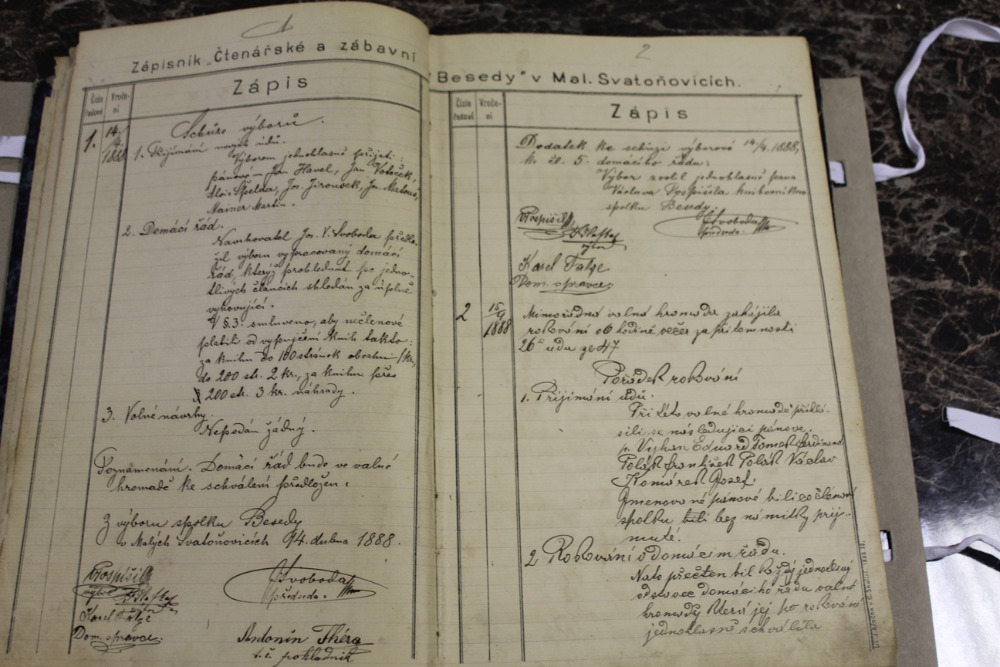 1
Zápisník „Čtenářské a zábavní
Číslo řadové
Vročení
Zápis
1.
14/4 1888
Schůze výboru.
1. Přijímání nových údů.
Výborem jednohlasně přijati:
pánové – Jan Havel, Jan Votoček,
Jos. Jirousek, Jos.
Mainer Martin.
2. Domácí řád.
Navrhovatel Jos. V. Svoboda předložil výboru vypracovaný domácí
řád, kterýž prohlednut po jednotlivých článcích shledán za úplně
vyhovující.
V §.3: smluveno, aby nečlenové
platili od vypůjčení knih takto:
za knihu do 100 stránek obsahu 1 kr,
do 200 str. 2 kr., za knihu přes
200 str. 3 kr. náhrady.
3. Volné návrhy.
Nepodán žádný.
Poznamenání. Domácí řád bude ve valné
hromadě ke schválení předložen:
Z výboru spolku Besedy
v Malých Svatoňovicích 14. dubna 1888.
Pospíšil
Svoboda
předseda
Karel
Dom. správce.
Antonín Théra
t.č. pokladník
2
Besedy“ v Mal. Svatoňovicích.
Číslo řadové
Vročení
Zápis
Dodatek ke schůzi výborové 14/4 1888,
k čl. 5. domácího řádu:
Výbor zvolil jednohlasně pana
Václava Pospíšila knihovníkem
spolku Besedy.
Pospíšil
Svoboda
předseda
Karel
Dom. správce
2
15/4 1888
Mimořádná valná hromada zahájila
rokování o 6 hodině večer za přítomnosti
26 údů ze 47
Pořádek rokování
1. Přijímání údů.
Při této valné hromadě přihlásili se následující pánové.
p. Vejhan Eduard Tomek Ferdinand
Polák František Polák Václav
Komárek Josef
Jmenované pánové bili co členové
spolku bez námitky přijmuté.
2 Rokování o domácím řádu.
Nato přečten bil každý jednotlivý
odstavec domácího řádu valné
hromady která jej po rokování
jednohlasně schválila